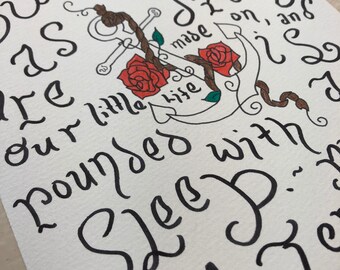 as
made on, and
are
our little life is
rounded with a
Sleep.~